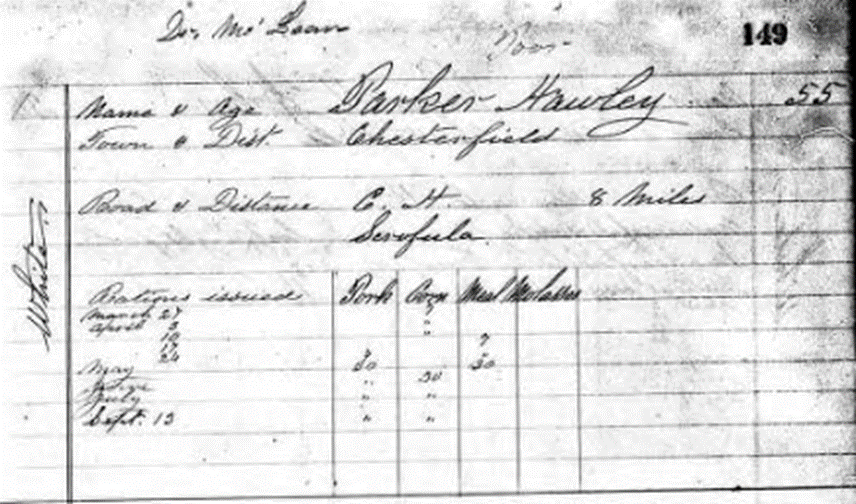 Dr. McLean
Poor
149
Name & Age Parker Hawley 55
Town & Dist. Chesterfield
Road & Distance C. H. 8 Miles
Scrofula
White
Rations issued Pork Corn Meal Molasses
March 27 7
April 3 "
10 "
17 7
24 " "
May 30 30
June " 30
July " "
Sept. 13 " "